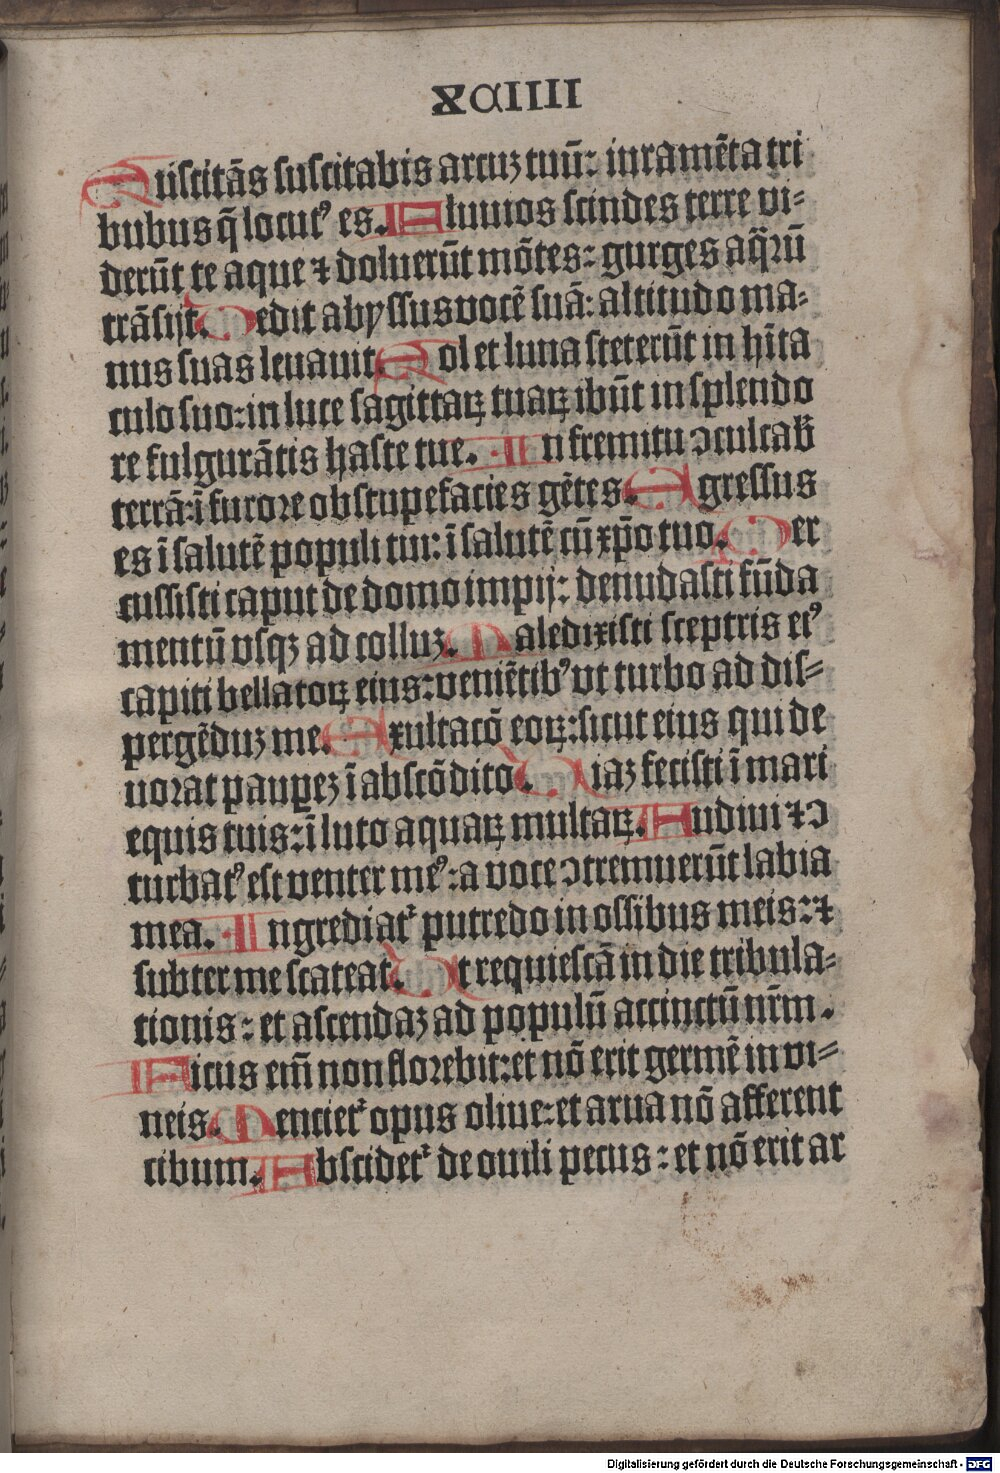 XCIIII
Suſcitãs ſuſcitabis arcuꝫ tuũ: iuramẽta tri
bubus q̃ locutꝰ es. Fluuios ſcindes terre vi⸗
derũt te aque ⁊ doluerũt mõtes: gurges aq̈rũ
trãſijt. Dedit abyſſus vocẽ ſuã: altitudo ma⸗
nus ſuas leuauit. Sol et luna ſteterũt in hĩta
culo ſuo: in luce ſagittaꝝ tuaꝝ ibũt in ſplendo
re fulgurãtis haſte tue. In fremitu ↄculcab̃
terrã: ĩ furore obſtupefacies gẽtes. Egreſſus
es ĩ ſalutẽ populi tui: ĩ ſalutẽ cũ xp̃o tuo. Per
cuſſiſti caput de domo impij: denudaſti fũda
mentũ vſqꝫ ad colluꝫ. Maledixiſti ſceptris eiꝰ
capiti bellatoꝝ eius: veniẽtibꝰ vt turbo ad diſ⸗
pergẽduꝫ me. Exultacõ eoꝝ: ſicut eius qui de
uorat pauꝑeꝫ ĩ abſcõdito. Uiaꝫ feciſti ĩ mari
equis tuis: ĩ luto aquaꝝ multaꝝ. Audiui ⁊ ↄ
turbatꝰ eſt venter meꝰ: a voce ↄtremuerũt labia
mea. Ingrediat᷑ putredo in oſſibus meis: ⁊
ſubter me ſcateat. Ut requieſcã in die tribula⸗
tionis: et aſcendaꝫ ad populũ accinctũ nr̃m.
Ficus em̃ non florebit: et nõ erit germẽ in vi⸗
neis. Menciet᷑ opus oliue: et arua nõ afferent
cibum. Abſcidet᷑ de ouili pecus: et nõ erit ar
Digitalisierung gefördert durch die Deutsche Forschungsgemeinschaft - DFG